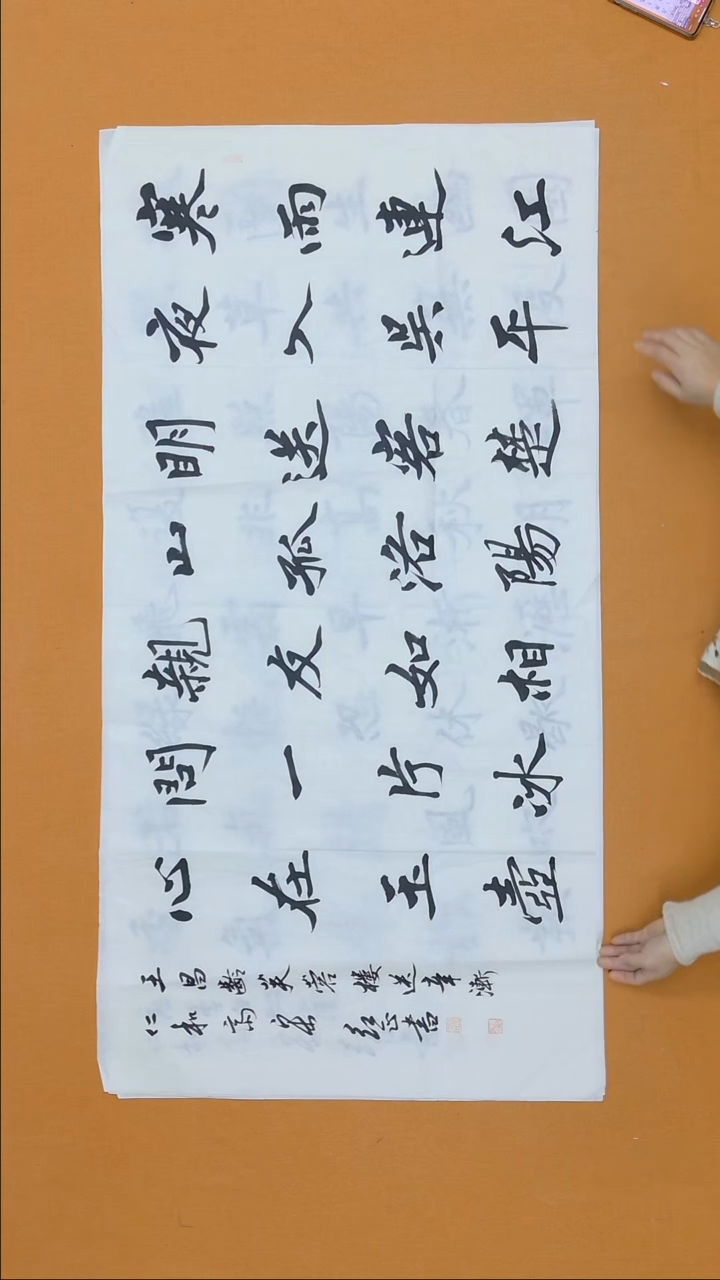 寒雨連江
夜入吳平
明送客楚
山孤洛陽
親友如相
問一片冰
心在玉壺
王昌齡芙蓉樓送辛漸
仁和高 書